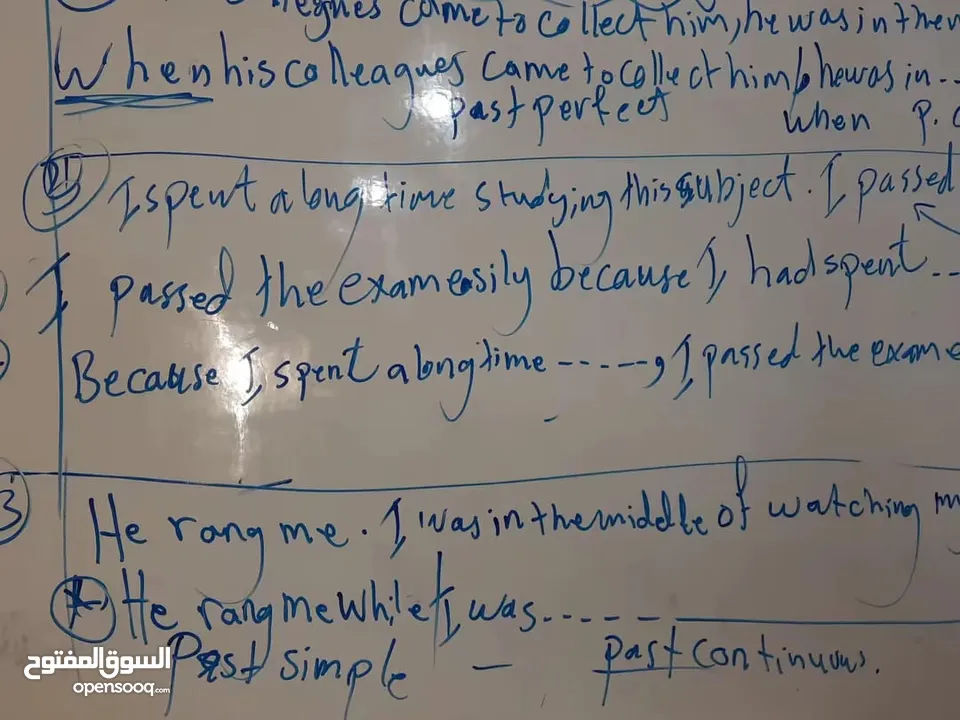 came to collect him, he was in the
When his colleagues came to collect him, he was in --
past perfect when p.
I spent a long time studying this subject. I passed
I passed the exam easily because I had spent --
Because I spent a long time -----, I passed the exam
3 He rang me. I was in the middle of watching m
He rang me while I was -----
Past simple - past continuous.
السوق المفتوح
opensooq.com